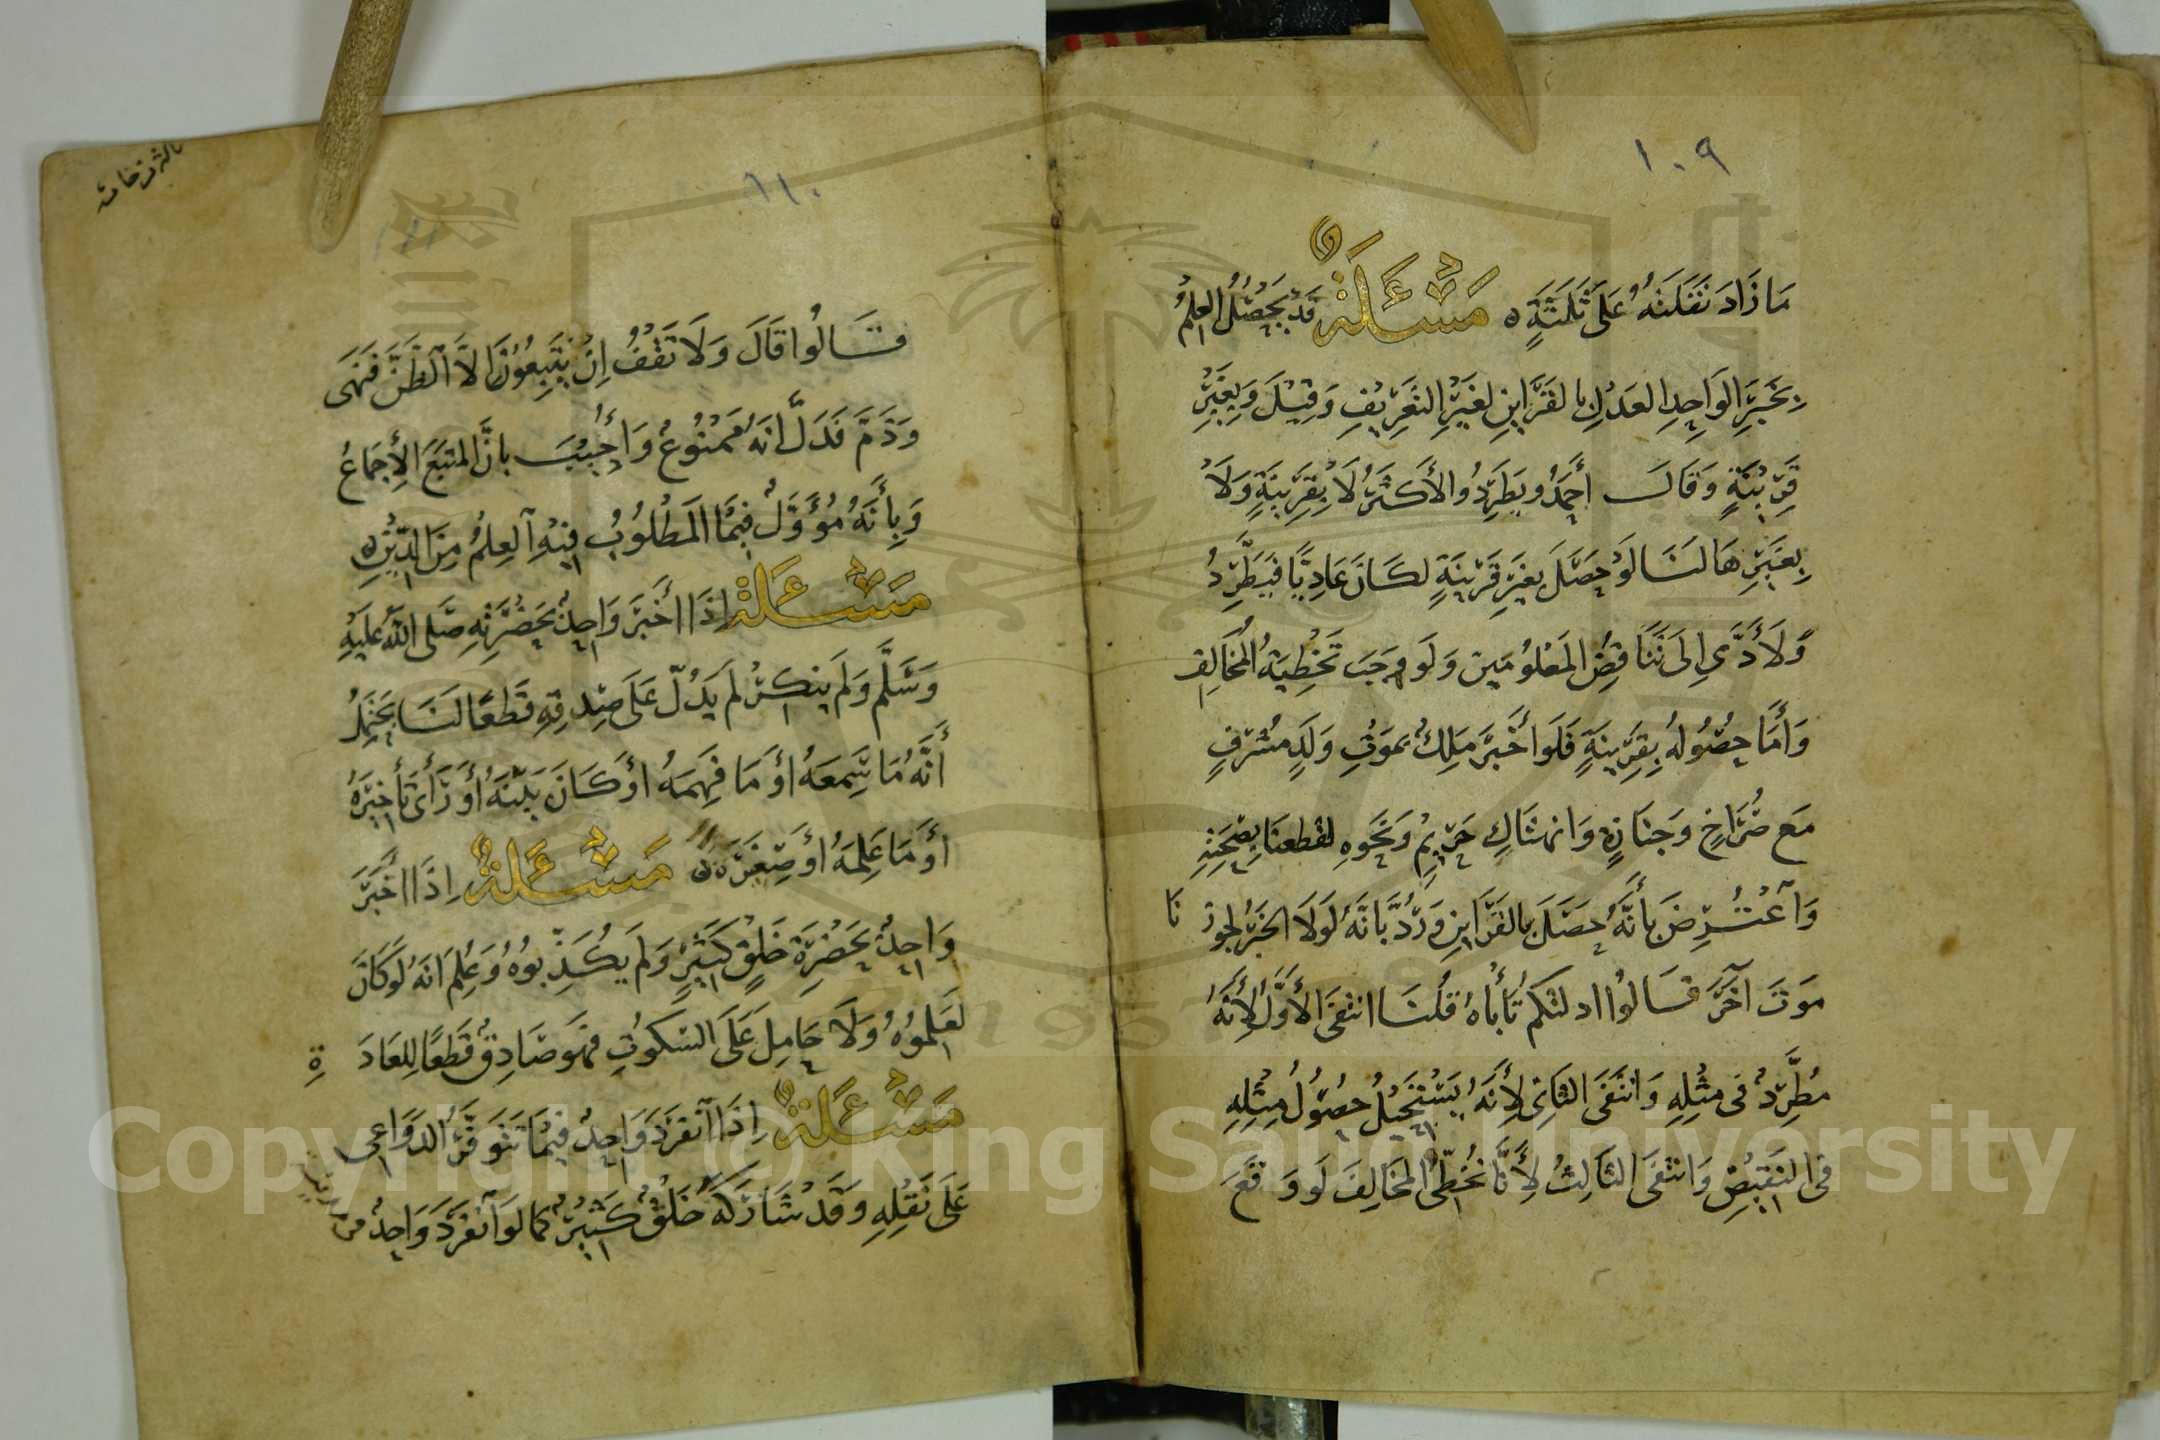 ١٠٩
مَا زَادَ نَقَلَتُهُ عَلَى ثَلَثَةٍ ه مَسْئَلَةٌ قَدْ يَحْصُلُ العِلْمُ
بِخَبَرِ الوَاحِدِ العَدْلِ بِالقَرَايِنِ لِغَيْرِ التَّعْرِيْفِ وَقِيْلَ وَبِغَيْرِ
قَرِيْنَةٍ وَقَالَ أَحْمَدُ وَيَطَّرِدُ وَالأَكْثَرُ لَا بِقَرِيْنَةٍ وَلَا
بِغَيْرِهَا لَنَا لَوْ حَصَلَ بِغَيْرِ قَرِيْنَةٍ لَكَانَ عَادِيًّا فَيَطَّرِدُ
وَلَأَدَّى إِلَى تَنَاقُضِ المَعْلُوْمَيْنِ وَلَوَجَبَ تَخْطِيَةُ المُخَالِفِ
وَأَمَّا حُصُوْلُهُ بِقَرِيْنَةٍ فَلَو أَخْبَرَ مَلِكٌ بِمَوْتِ وَلَدٍ مُشْرِفٍ
مَعَ صُرَاخٍ وَجَنَازَةٍ وَانْهِتَاكِ حَرِيْمٍ وَنَحْوِهِ لَقَطَعْنَا بِصِحَّتِهِ
وَاعْتُرِضَ بِأَنَّهُ حَصَلَ بِالقَرَايِنِ وَرُدَّ بِأَنَّهُ لَوْلَا الخَبَرُ لَجَوَّزْ نَا
مَوْتَ آخَرَ قَالُوْا ادلتكم تَأْبَاهُ قُلْنَا انْتَفَى الأَوَّلُ لِأَنَّهُ
مُطَّرِدٌ فِى مِثْلِهِ وَانْتَفَى الثَّانِى لِأَنَّهُ يَسْتَحِيْلُ حُصُوْلُ مِثْلِهِ
فِى النَّقِيْضِ وَانْتَفَى الثَّالِثُ لِأَنَّا نُخَطِّىُ المُخَالِفَ لَوْ وَقَعَ
١١٠
قَالُوا قَالَ وَلَا تَقْفُ إِنْ يَتَّبِعُوْنَ إِلَّا الظَّنَّ فَنَهَى
وَذَمَّ فَدَلَّ أَنَّهُ مَمْنُوْعٌ وَأُجِيْبَ بِأَنَّ المُتَّبَعَ الإِجْمَاعُ
وَبِأَنَّهُ مُؤَوَّلٌ فِيْمَا المَطْلُوْبُ فِيْهِ العِلْمُ مِنَ الدِّيْنِ ه
مَسْئَلَةٌ إِذَا أَخْبَرَ وَاحِدٌ بِحَضْرَتِهِ صَلَّى اللهُ عَلَيْهِ
وَسَلَّمَ وَلَمْ يُنْكِرْ لَمْ يَدُلَّ عَلَى صِدْقِهِ قَطْعًا لَنَا يَحْتَمِلُ
أَنَّهُ مَا سَمِعَهُ أَوْ مَا فَهِمَهُ أَوْ كَانَ بَيَّنَهُ أَوْ رَأَى تَأْخِيْرَهُ
أَوْ مَا عَلِمَهُ أَوْ صَغِيْرَةٌ ه مَسْئَلَةٌ إِذَا أَخْبَرَ
وَاحِدٌ بِحَضْرَةِ خَلْقٍ كَثِيْرٍ وَلَمْ يُكَذِّبُوهُ وَعُلِمَ أَنَّهُ لَوْ كَانَ
لَعَلِمُوْهُ وَلَا حَامِلَ عَلَى السُّكُوْتِ فَهُوَ صَادِقٌ قَطْعًا لِلعَادَ ةِ
مَسْئَلَةٌ إِذَا انْفَرَدَ وَاحِدٌ فِيْمَا تَتَوَفَّرُ الدَّوَاعِى
عَلَى نَقْلِهِ وَقَدْ شَارَكَهُ خَلْقٌ كَثِيْرٌ كَمَا لَوِ انْفَرَدَ وَاحِدٌ
Copyright © King Saud University
1957